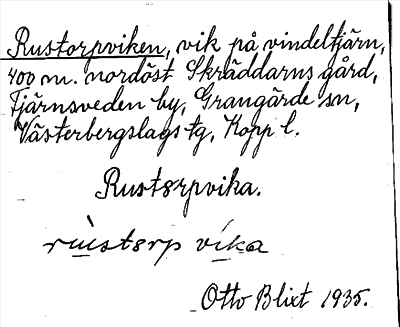 Rustorpviken, vik på vindeltjärn,
400 m. nordöst Skräddarns gård,
Tjärnsveden by, Grangärde sn,
Västerbergslags tg, Kopp l.
Rustørpvika.
rùstørp víka
Otto Blixt 1935.